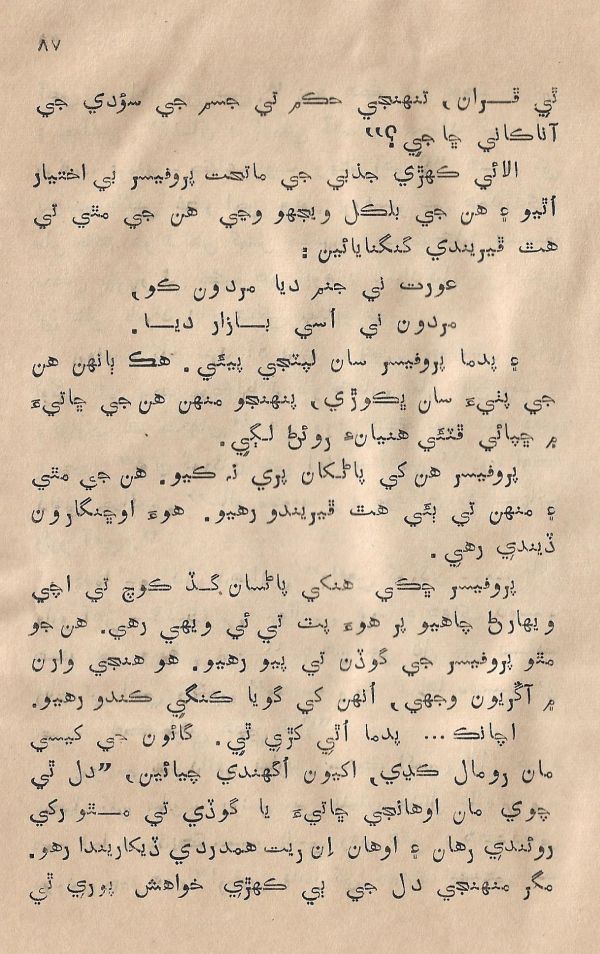 ٨٧
ٿي ڦــران، تنهنجي حڪم تي جسم جي سؤدي جي
آناڪاني ڇا جي؟“
الائي ڪهڙي جذبي جي ماتحت پروفيسر بي اختيار
اُٿيو ۽ هن جي بلڪل ويجهو وڃي هن جي مٿي تي
هٿ ڦيريندي گنگنايائين :
عورت ني جنم ديا مردون ڪو،
مردون ني اُسي بــازار ديــا.
۽ پدما پروفيسر سان لپٽجي پيئي. هڪ ٻانهن هن
جي پٺيءَ سان ڀڪوڙي، پنهنجو منهن هن جي ڇاتيءَ
۾ ڇپائي ڦٽئي هنيانءُ روئڻ لڳي.
پروفيسر هن کي پاڻکان پري نہ ڪيو. هن جي مٿي
۽ منهن تي ٻئي هٿ ڦيريندو رهيو. هوءَ اوڇنگارون
ڏيندي رهي.
پروفيسر ڇڪي هنکي پاڻسان گڏ ڪوچ تي اچي
ويهارڻ چاهيو پر هوءَ پٽ تي ئي ويهي رهي. هن جو
مٿو پروفيسر جي گوڏن تي پيو رهيو. هو هنجي وارن
۾ آڱريون وجهي، اُنهن کي گويا ڪنگي ڪندو رهيو.
اچانڪ... پدما اُٿي کڙي ٿي. گائون جي کيسي
مان رومال ڪڍي، اکيون اُگهندي چيائين، ”دل ٿي
چوي مان اوهانجي ڇاتيءَ يا گوڏي تي مــٿو رکي
روئندي رهان ۽ اوهان اِن ريت همدردي ڏيکاريندا رهو.
مگر منهنجي دل جي ٻي ڪهڙي خواهش پوري ٿي